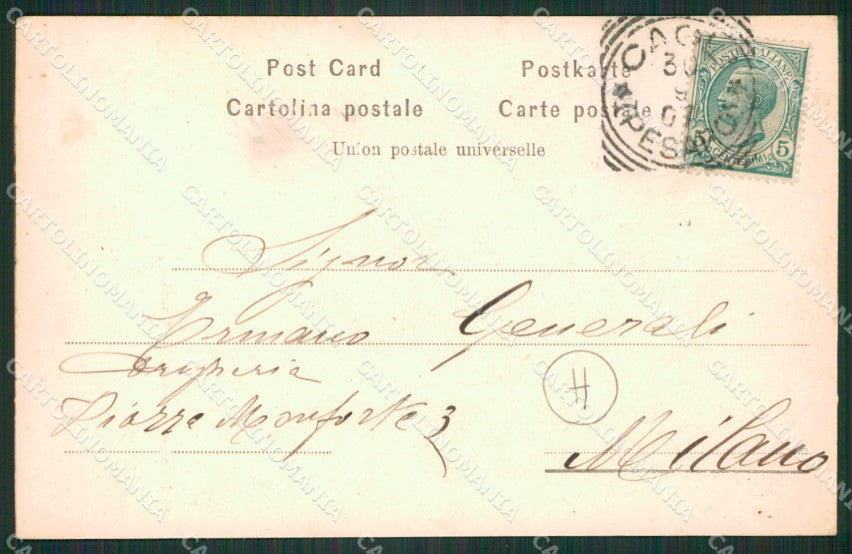 Post Card Postkarte
Cartolina postale Carte postale
Union postale universelle
CAG
30
9
07
PESARO
POSTE ITALIANE
5 CENTESIMI 5
Signor
Ermano Generali
Drogheria
Piazza Monforte 3
H
Milano
CARTOLINOMANIA